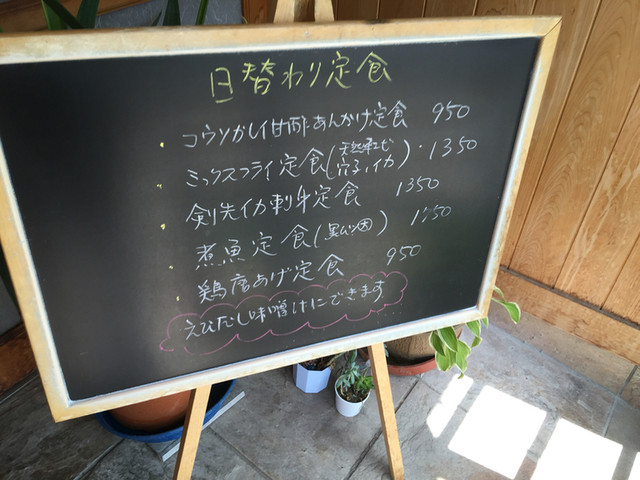 日替わり定食
コウソかレイ甘酢あんかけ定食 950
ミックスフライ定食(天然車エビ 穴子、イカ)・1350
剣先イカ刺身定食 1350
煮魚定食(黒ムツ) 1750
鶏唐あげ定食 950
えびだし味噌汁にできます